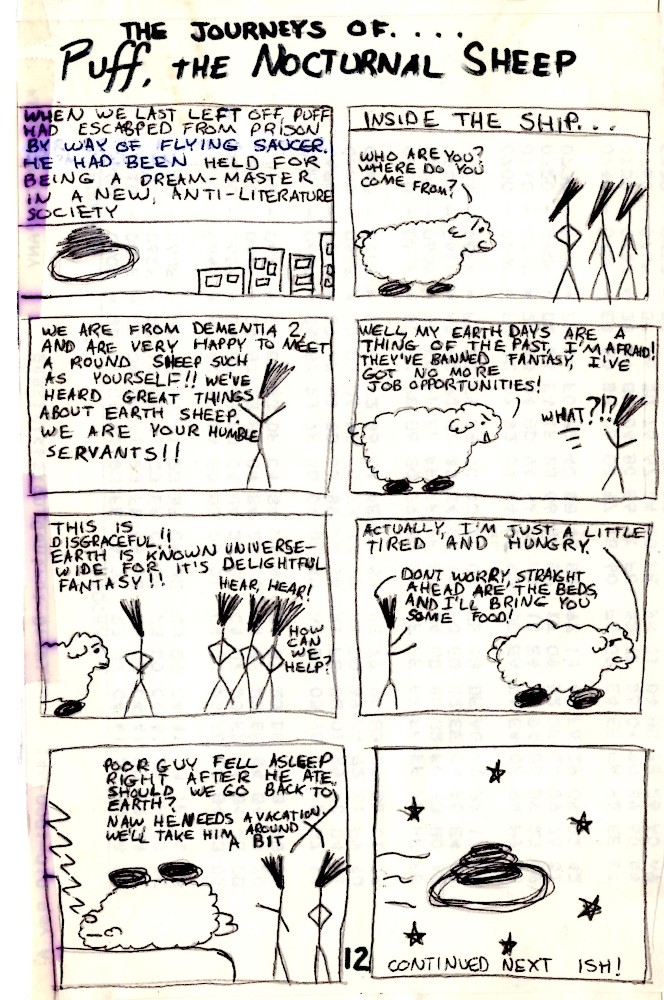 THE JOURNEYS OF....
Puff, THE NOCTURNAL SHEEP
WHEN WE LAST LEFT OFF, PUFF
HAD ESCAPED FROM PRISON
BY WAY OF FLYING SAUCER.
HE HAD BEEN HELD FOR
BEING A DREAM-MASTER
IN A NEW, ANTI-LITERATURE
SOCIETY
INSIDE THE SHIP...
WHO ARE YOU?
WHERE DO YOU
COME FROM?
WE ARE FROM DEMENTIA 2,
AND ARE VERY HAPPY TO MEET
A ROUND SHEEP SUCH
AS YOURSELF!! WE'VE
HEARD GREAT THINGS
ABOUT EARTH SHEEP.
WE ARE YOUR HUMBLE
SERVANTS!!
WELL, MY EARTH DAYS ARE A
THING OF THE PAST, I'M AFRAID!
THEY'VE BANNED FANTASY, I'VE
GOT NO MORE
JOB OPPORTUNITIES!
WHAT?!?
THIS IS
DISGRACEFUL!!
EARTH IS KNOWN UNIVERSE-
WIDE FOR IT'S DELIGHTFUL
FANTASY!!
HEAR, HEAR!
HOW
CAN
WE
HELP?
ACTUALLY, I'M JUST A LITTLE
TIRED AND HUNGRY.
DONT WORRY, STRAIGHT
AHEAD ARE THE BEDS,
AND I'LL BRING YOU
SOME FOOD!
POOR GUY FELL ASLEEP
RIGHT AFTER HE ATE.
SHOULD WE GO BACK TO
EARTH?
NAW HE NEEDS A VACATION,
WE'LL TAKE HIM AROUND
A BIT
12
CONTINUED NEXT ISH!